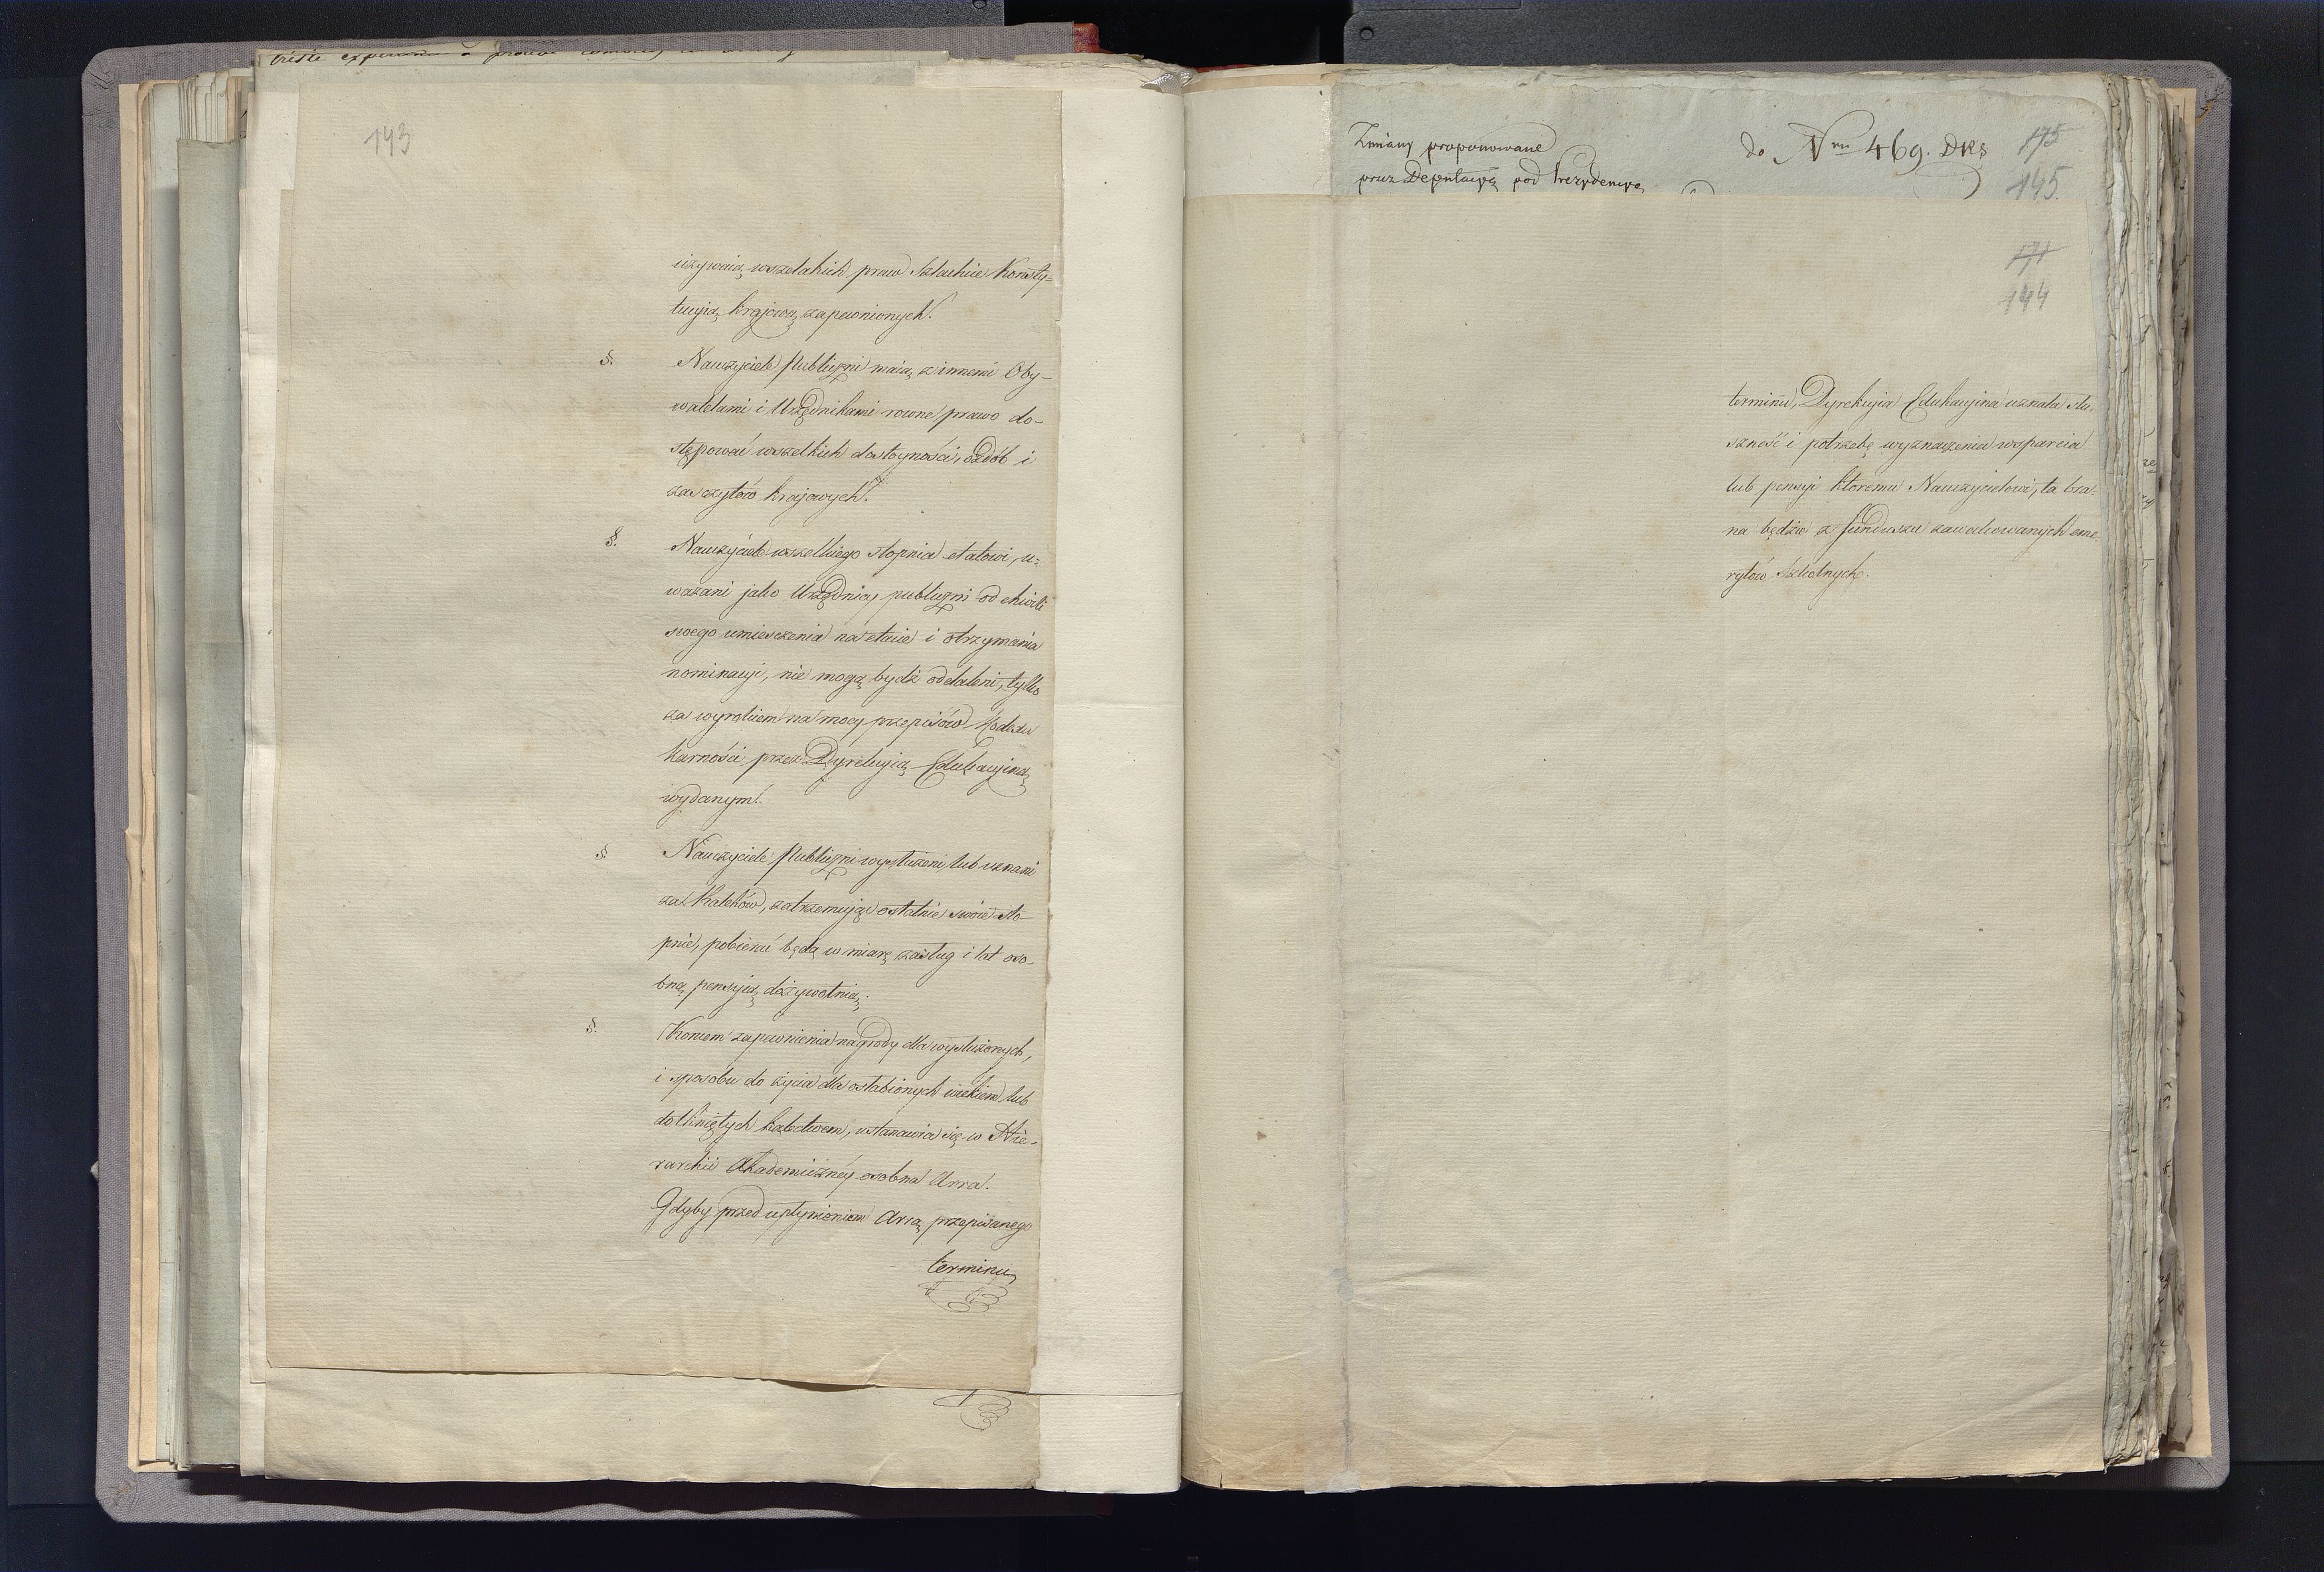 143
używaią wszelakich praw Szlachcie Konsty=
tucyią krajową zapewnionych.
§. Nauczyciele Publiczni maią z innemi Oby-
watelami i Urzędnikami rowne prawo do-
stępować wszelkich dostoyności, ozdób i
zasczytów krajowych.
§. Nauczyciele wszelkiego stopnia etatowi, u-
ważani jako Urzędnicy publiczni od chwili
swego umiesczenia na etacie i otrzymania
nominacyi, nie mogą bydź oddaleni, tylko
za wyrokiem na mocy przepisów Kodexu
Karności przez Dyrekcyią Edukacyiną
wydanym.
§. Nauczyciele Publiczni wysłużeni lub uznani
za Kaleków, zatrzemując ostatnie swoie sto-
pnie, pobierać będą w miarę zasług i lat oso-
bną pensyią dożywotnią.
§. Końcem zapewnienia nagrody dla wysłużonych,
i sposobu do życia dla osłabionych wiekiem lub
dotkniętych kalectwem, ustanawia się w Hie-
rarchii Akademiczney osobna Arra.
Gdyby przed upłynieniem Arrą przepisanego
terminu
Zmiany proponowane
przez Deputacyą pod Prezydencyą
do Nru 469. DKS
175
145.
171
144
terminu, Dyrekcyia Edukacyina uznała słu-
szność i potrzebę wyznaczenia wsparcia
lub pensyi ktoremu Nauczycielowi, ta bra-
na będzie z funduszu zawakowanych eme-
rytów Szkolnych.